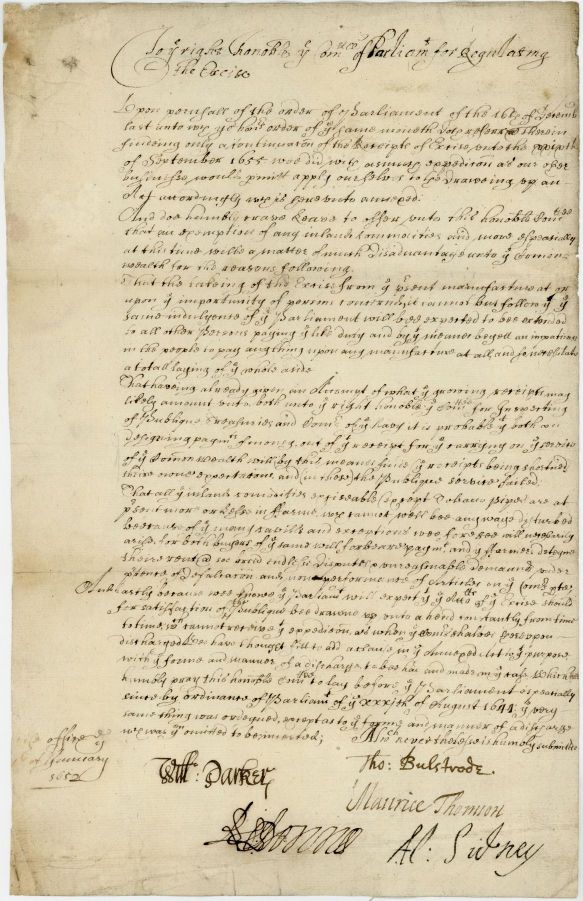 To ye right honoble ye Comittee of Parliamt for Regulating
the Excise
Upon perusall of the order of Parliament of the 16th of
last unto wch ye order of ye same moneth doth referr Therein
findeing only a continuation of the Receipts of Excise, unto the
of September 1655 wee did with as much expedition as our other
businesses would pmitt apply our selves to the draweing up an
Act accordingly wch is hereunto annexed:
And doe humbly crave Leave to offer unto this honoble Comittee
that an exemption of any inland Commodities and more especially
at this time wilbe a matter of much Disadvantage unto ye Comon
wealth for the reasons following
That the takeing of the Excise from ye psent manufacture at or
upon ye importunity of persons concerned cannot but follow yt ye
same indulgence of ye Parliament will bee expected to bee extended
to all other Persons paying ye like duty and by yt meanes begett an
in the people to pay any thing upon any manufacture at all, and so necessitate
a totall laying of ye whole aside
That haveing already given an Accompt of what ye groweing receipts may
likely amount unto both unto ye right honoble ye Comittee for Inspecting
of Publique Treasuries and of ye Navy it is probable ye both
designeing paymts of moneys out of ye receipt for ye carrying on ye service
of ye Common Wealth will by this meanes since ye receipts being shortned
theire owne expectations and (in theise) the Publique service failed.
That all ye inland comodities exciseable (except Tobacco Pipes) are at
psent more or lesse in Farme, wch cannot well bee any wayes disturbed
because of ye many cavills and exceptions wee foresee will necessarily
arise for both buyers of ye same will forbeare paymt and ye Farmers deteyne
theire rent (and so breed endlesse disputes) unreasonable demaunds under
ptence of Defalcation and non performance of Articles on ye
And Lastly because wee know ye Parliamt will expect yt ye of ye Excise should
for satisfaction of ye Publique bee drawne up unto a head constantly from time
to time, wch cannot receive yt expedicion, as when ye Comrs shalbee
discharged Wee have thought fitt to add a clause in ye annexed Act to yt purpose
with ye forme and manner of a discharge to bee had and made in yt case Which wee
humbly pray this honoble Comittee to lay before ye Parliament especially
since by ordinance of Parliamt of ye xxxith of August 1644 ye very
same thing was ordeyned, except as to ye forme and manner of a discharge
wch was yn omitted to be inserted; Wch nevertheless is humbly submitted
office
January
1652
Will: Parker
Tho: Bulstrode.
Maurice Thomson
Al: Sidney